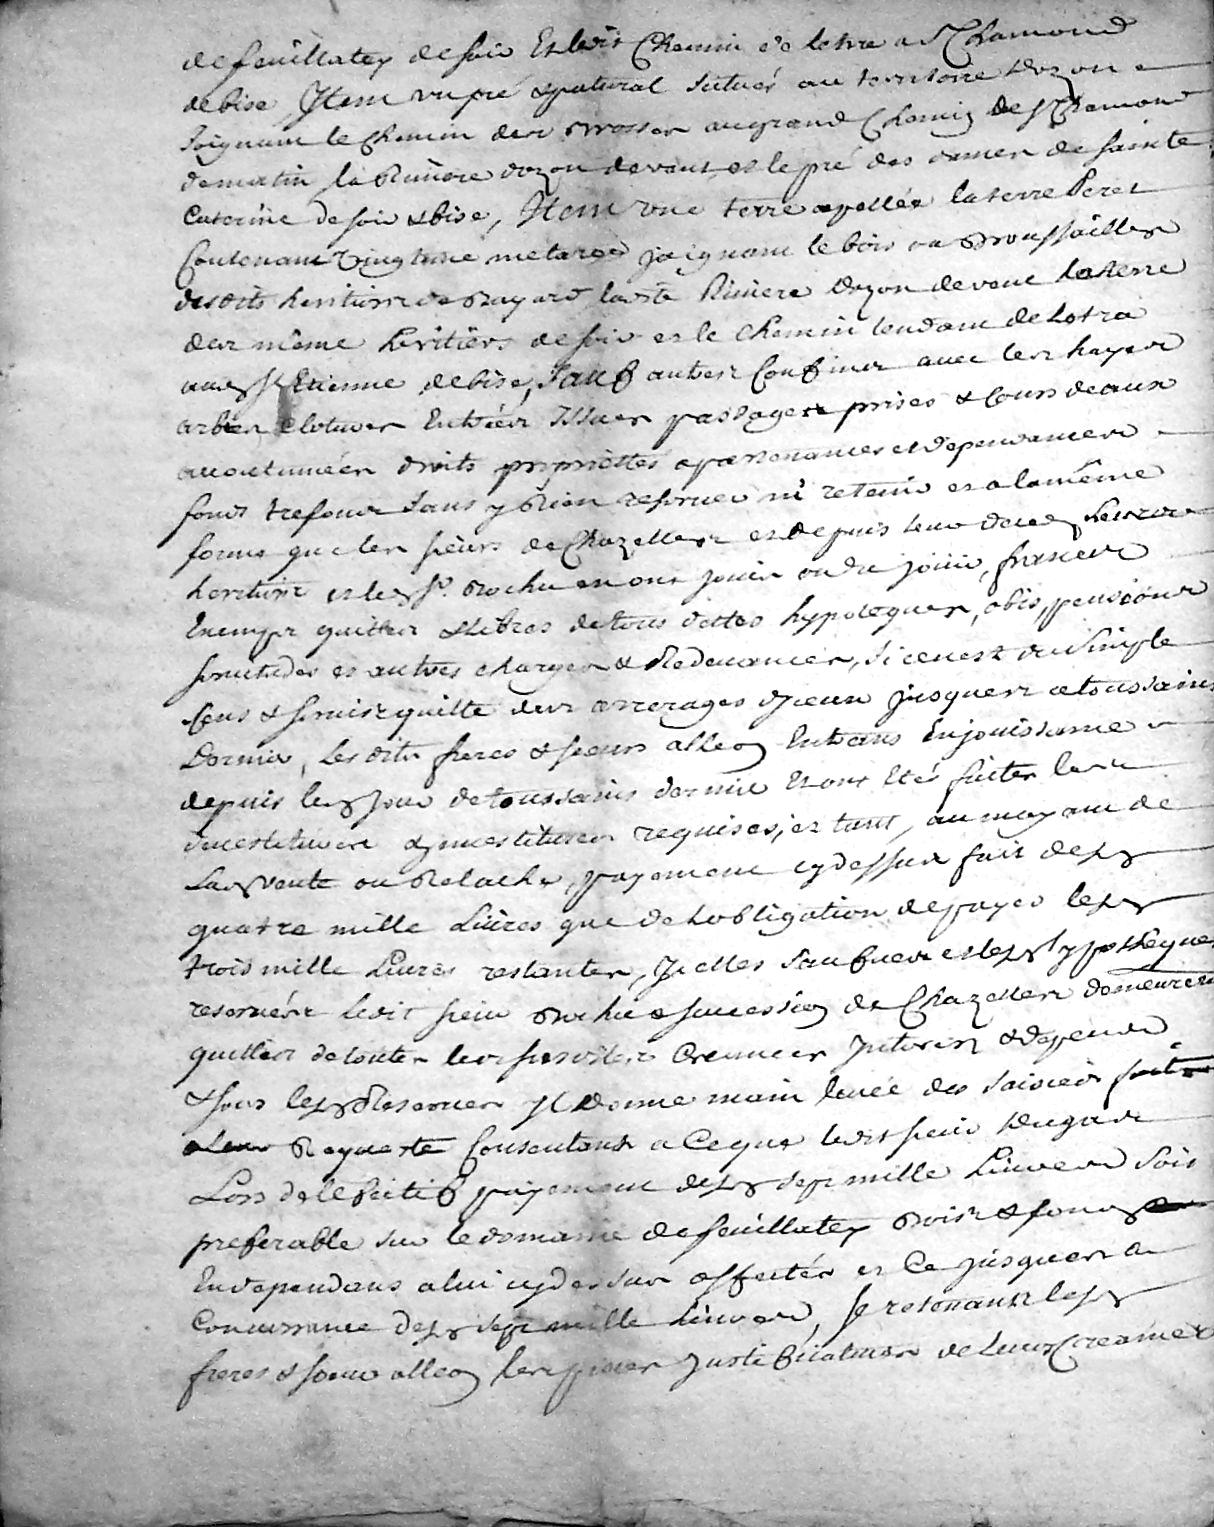 de feuillatey de soir Et ledit Chemin de letra a St Chamond
de bise, Item un pré & patural situés au territoire dozon
Joignant le Chemin des Brosses au grand Chemin de St Chamond
de matin la Riuiere dozon de vent, et le pré des dames de sainte
Caterine de soir & bise, Item une terre apellée la terre Peret
Contenant vingt une meterée joignant le bois ou Broussailles
desdits heritiers de Bayard, lad'te Riuiere dozon de vent la terre
des même héritiers de soir et le Chemin tendant de Lotra
aud St Etienne de bise, Sauf autres Confines avec les hayes
arbres Clotures Entrées Issues passages prises & Cours deaux
accoutumées droits proprietes apartenances et dependances
fonds trefonds sans y Rien reseruer ni retenir et a la même
forme que les sieurs de Chazelles et depuis leur deces Leurs
heritiers et led Sr. Rochu en ont jouis ou du jouir, francs
Exempts quittes & libres de tous dettes hypoteques, obis, pensions
seruitudes et autres charges & Redeuances, si ce nest du simple
Cens & seruis quitte des arrerages diceux jusques a toussaints
Dernier, Lesdits freres & soeurs alleon Entrans En jouissance
depuis led jour de toussaints dernier Et ont Etés faites les
deuestitures & jnuestitures requises, et tant, au moyant de
Lad vente ou Relache, payement cy dessus fait desd
quatre mille Liures que de Lobligation de payer lesd
trois mille Liures restantes, Jcelles sauf­ues et lesd hypotheques
reseruées ledit sieur Rochu & succession de Chazelles demeurent
quittes de toutes lesd susdites Creances Jnterets & depends
& sous lesd Reserues Jl donne main leuée des saisies faites
a leur Requeste Consentant a Ce que ledit sieur Dugas
Lors de leffectif payement desd sept mille Liures Soit
preferable sur le domaine de feuillatey Bois & fonds
En dependans a lui cy dessus affectés et Ce jusques a
Concurrance desd sept mille Liures, se retenant lesd
freres & soeur alleon les pieces justificatiues de leurs Creances